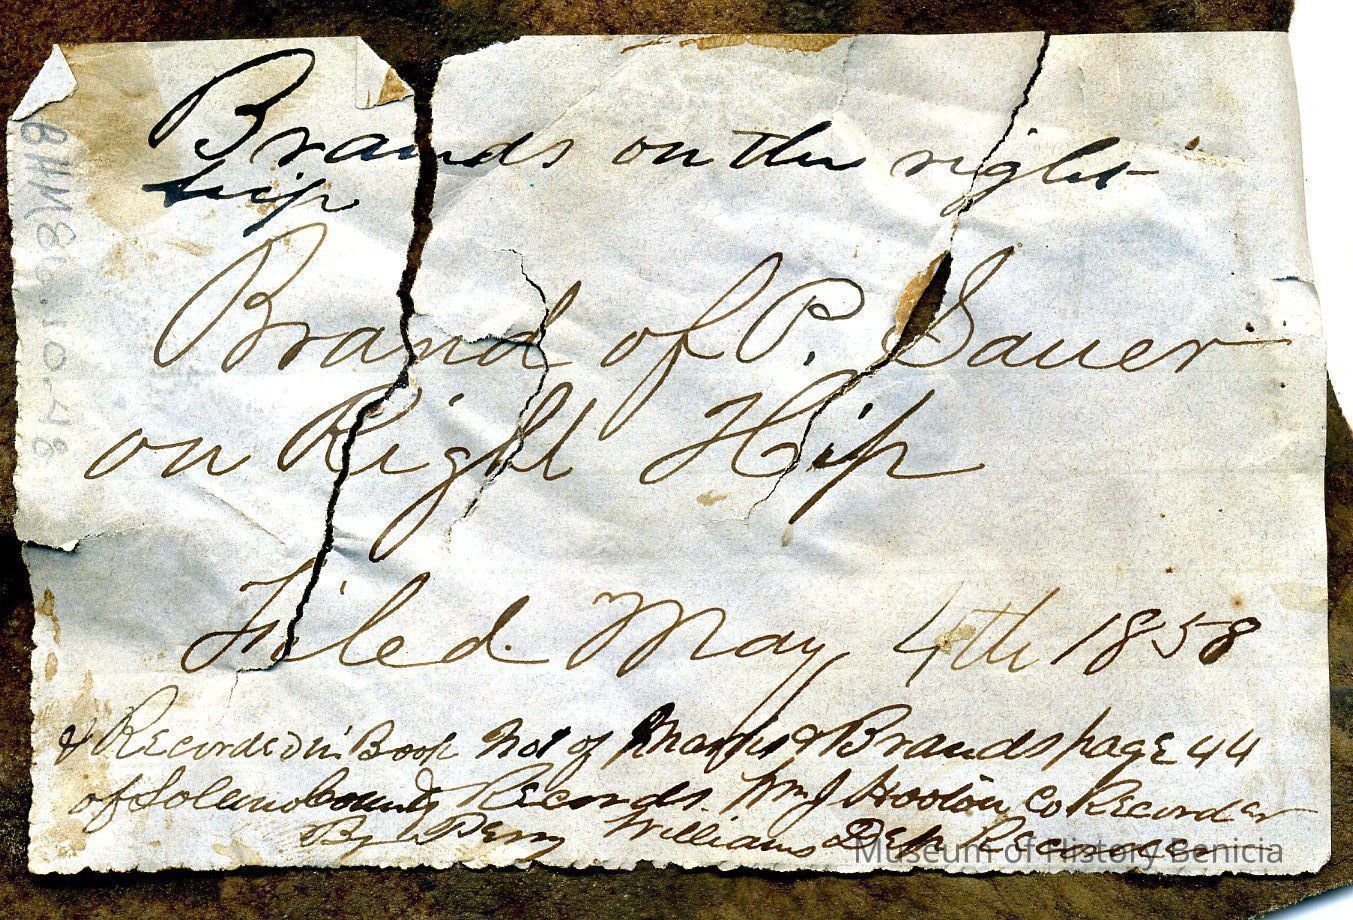 Brands on the right
hip
Brand of P. Sauer
on Right Hip
Filed May 4th 1858
& Recorded in Book No 1 of Marks & Brands page 44
of Solano County Records. Wm J Hooton Co Recorder
By Perry Williams Dep Recorder
Museum of History Benicia